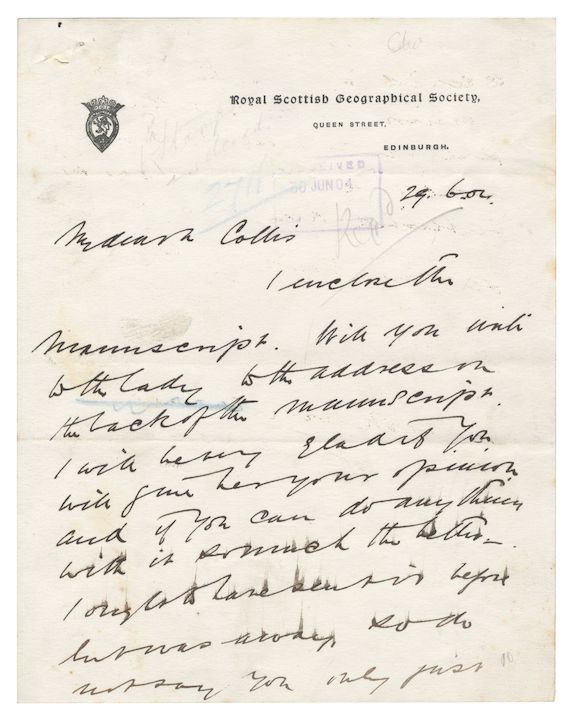 Royal Scottish Geographical Society,
QUEEN STREET,
EDINBURGH.
30 JUN 04
29.6.04.
My dear Mr Collis
I enclose the
manuscript. Will you write
to the lady to the address on
the back of the manuscript.
I will be very glad if you
will give her your opinion
and if you can do anything
with it so much the better –
I ought to have sent it before
but was away, so do
not say you only just